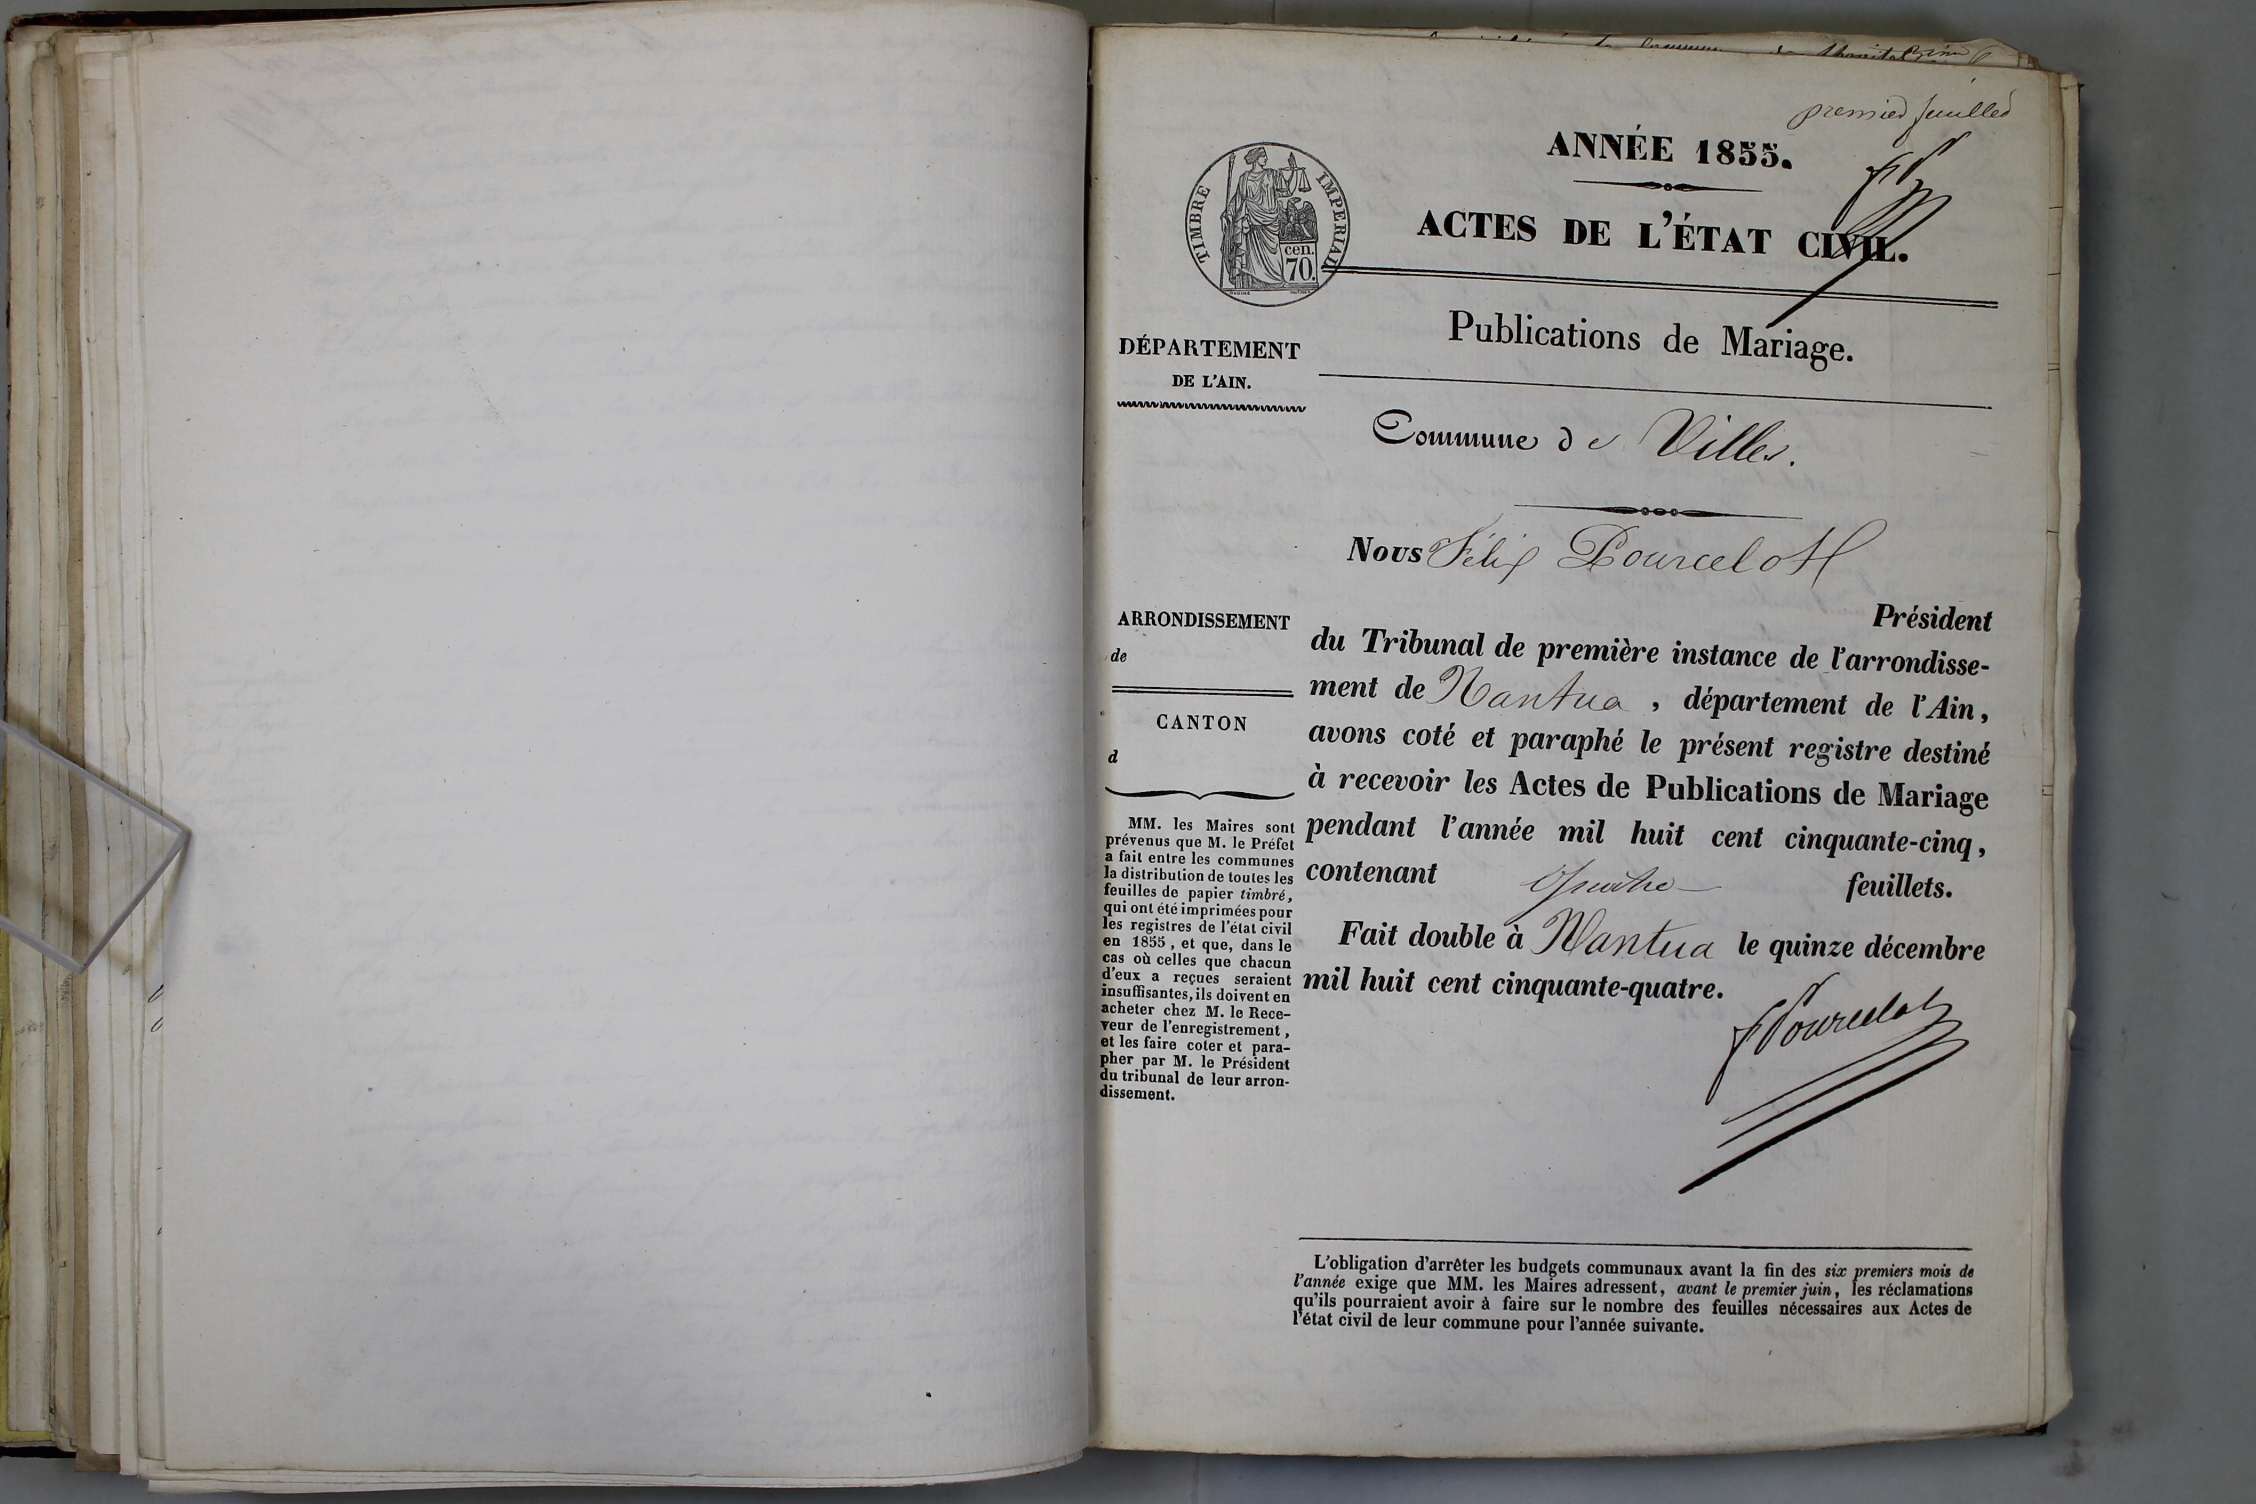 premier feuillet
ANNÉE 1855.
TIMBRE IMPERIAL
cen.
70.
ACTES DE L'ÉTAT CIVIL.
Publications de Mariage.
DÉPARTEMENT
DE L'AIN.
Commune de Villes.
Nous Félix Pourcelot
Président
ARRONDISSEMENT
de
CANTON
d
du Tribunal de première instance de l'arrondisse-
ment de Nantua, département de l'Ain,
avons coté et paraphé le présent registre destiné
à recevoir les Actes de Publications de Mariage
pendant l'année mil huit cent cinquante-cinq,
contenant quatre feuillets.
Fait double à Nantua le quinze décembre
mil huit cent cinquante-quatre.
F Pourcelot
MM. les Maires sont
prévenus que M. le Préfet
a fait entre les communes
la distribution de toutes les
feuilles de papier timbré,
qui ont été imprimées pour
les registres de l'état civil
en 1855, et que, dans le
cas où celles que chacun
d'eux a reçues seraient
insuffisantes, ils doivent en
acheter chez M. le Rece-
veur de l'enregistrement,
et les faire coter et para-
pher par M. le Président
du tribunal de leur arron-
dissement.
L'obligation d'arrêter les budgets communaux avant la fin des six premiers mois de
l'année exige que MM. les Maires adressent, avant le premier juin, les réclamations
qu'ils pourraient avoir à faire sur le nombre des feuilles nécessaires aux Actes de
l'état civil de leur commune pour l'année suivante.